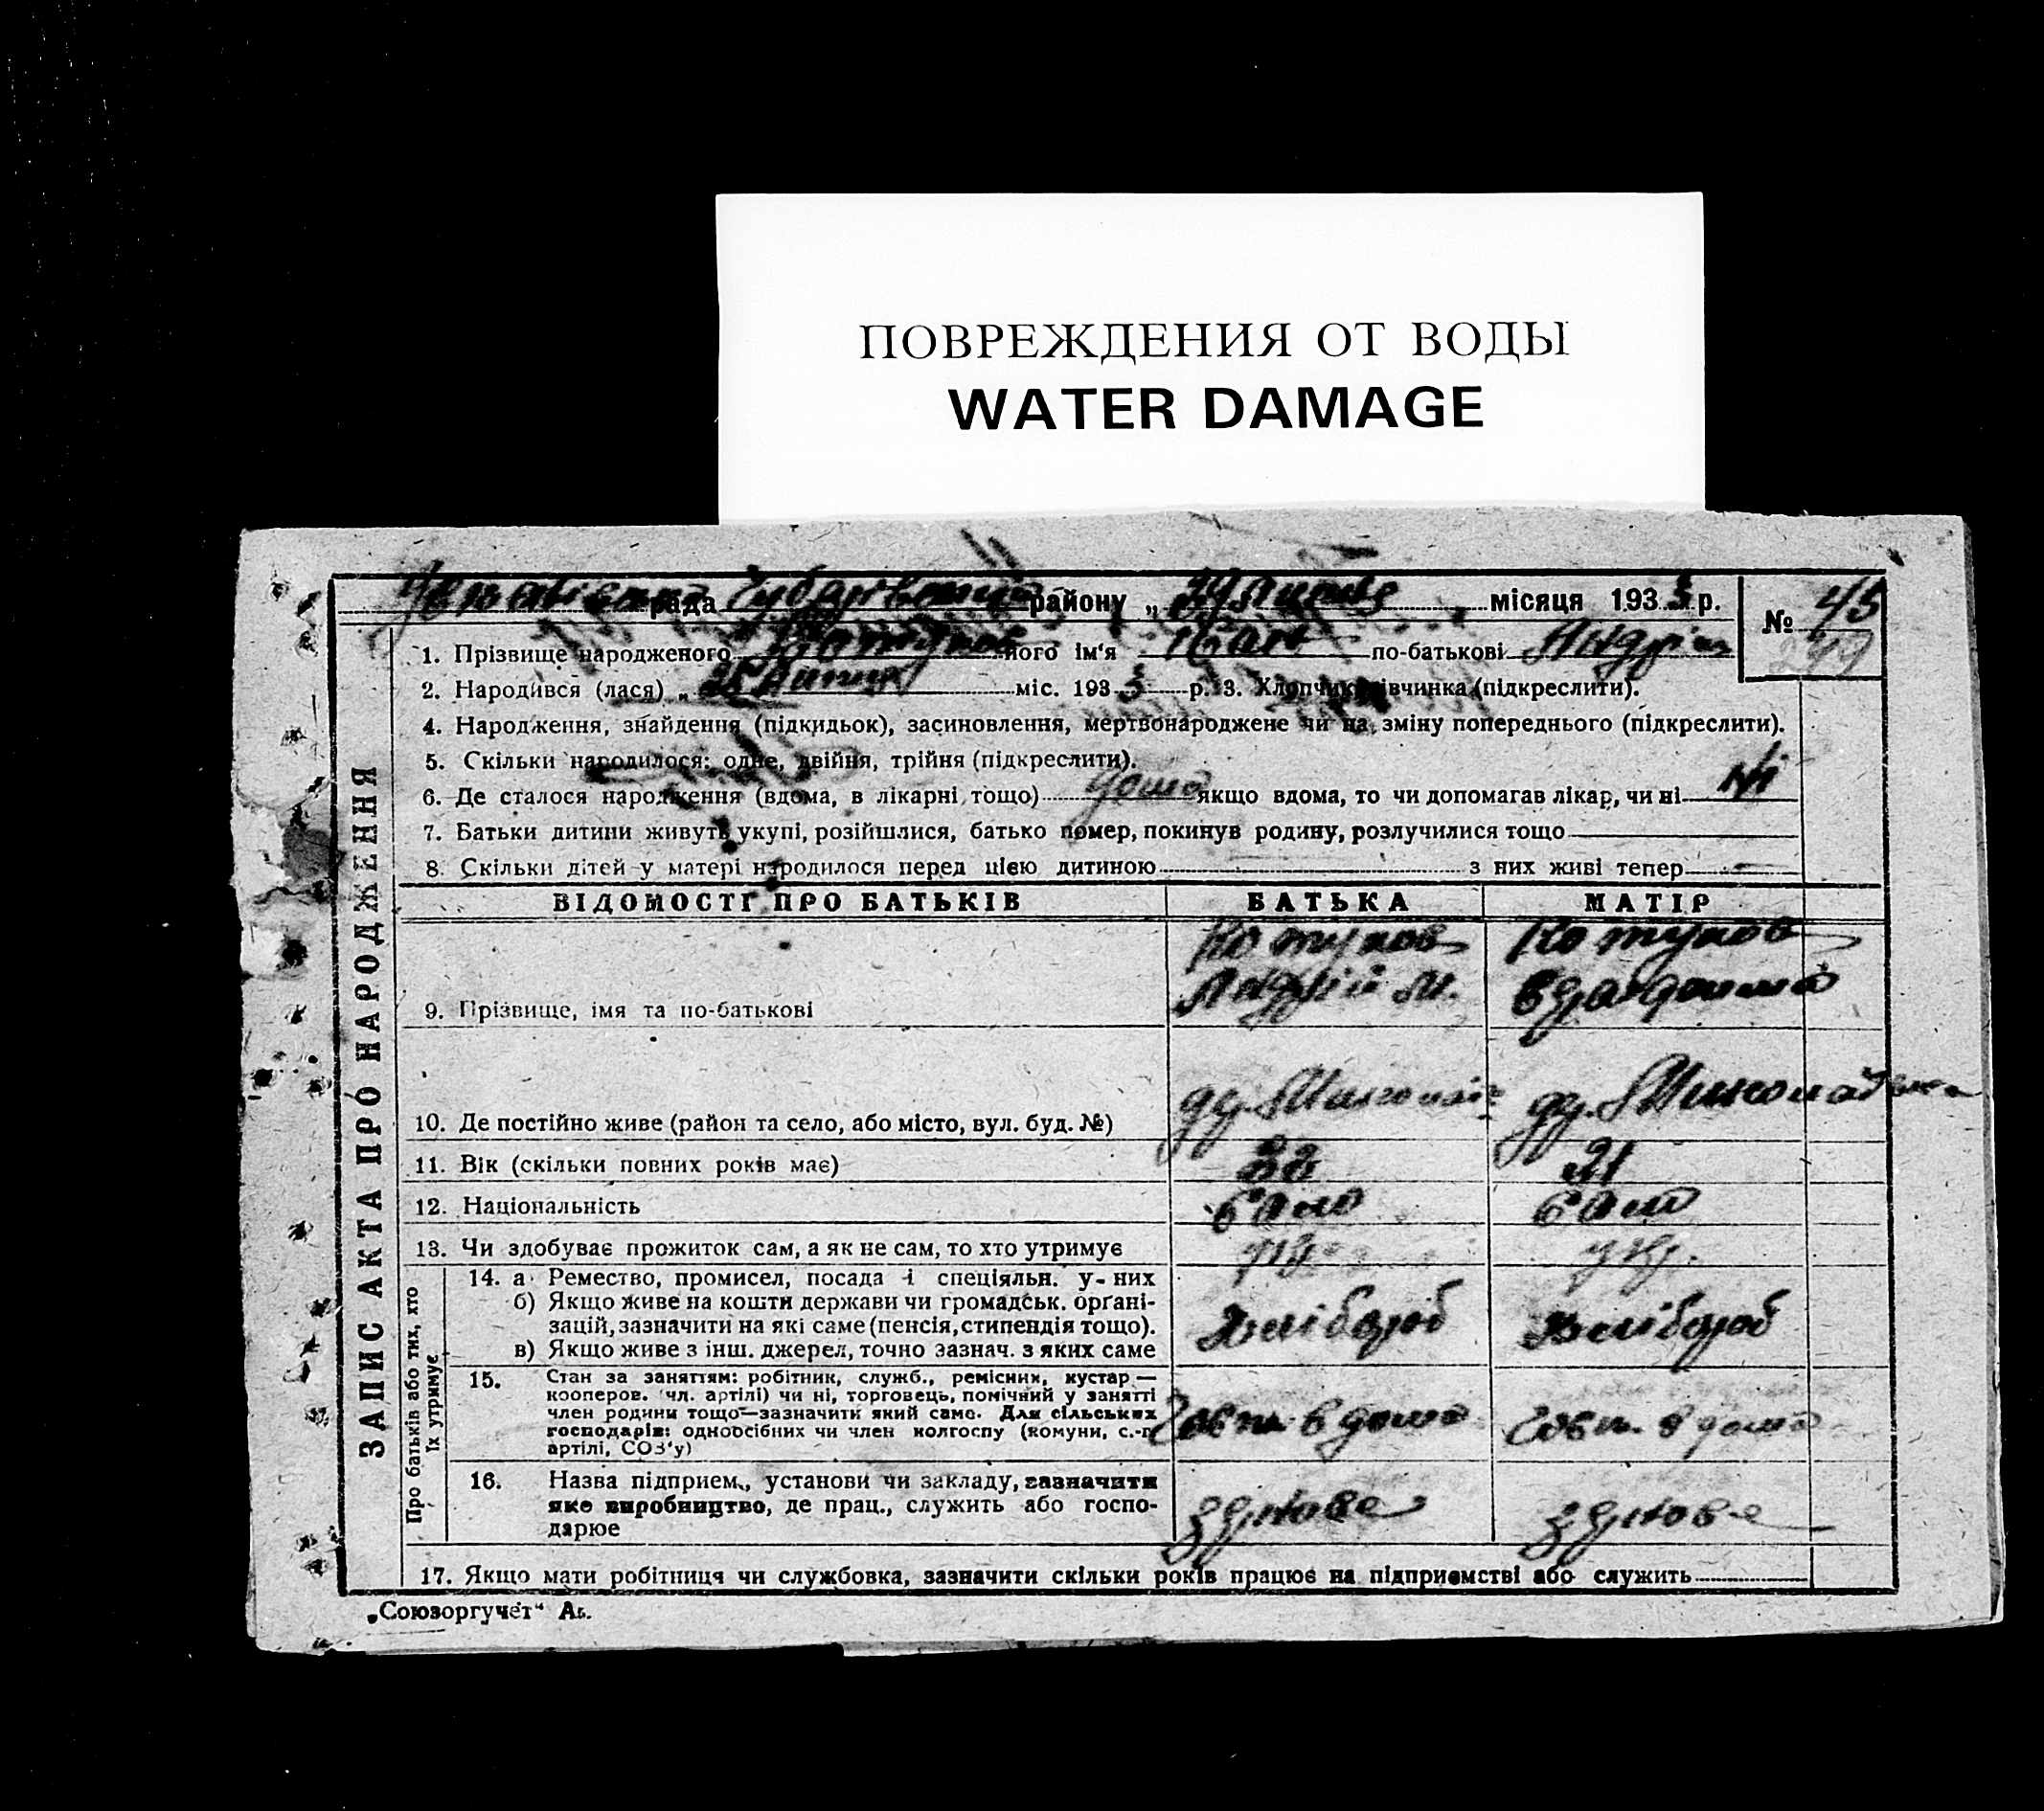 ПОВРЕЖДЕНИЯ ОТ ВОДЫ
WATER DAMAGE
рада району „ місяця 193 3 р.
№ 45
1. Прізвище народженого його ім'я Іван по-батькові
2. Народився (лася) „ 25 міс. 193 3 р. 3. Хлопчик, дівчинка (підкреслити).
4. Народження, знайдення (підкидьок), засиновлення, мертвонароджене чи на зміну попереднього (підкреслити).
5. Скільки народилося: одне, двійня, трійня (підкреслити).
6. Де сталося народження (вдома, в лікарні тощо) дома якщо вдома, то чи допомагав лікар, чи ні ні
7. Батьки дитини живуть укупі, розійшлися, батько помер, покинув родину, розлучилися тощо
8. Скільки дітей у матері народилося перед цією дитиною з них живі тепер
ЗАПИС АКТА ПРО НАРОДЖЕННЯ
ВІДОМОСТІ ПРО БАТЬКІВ БАТЬКА МАТІР
Котунов Котунов
9. Прізвище, імя та по-батькові Андрій М.
10. Де постійно живе (район та село, або місто, вул. буд. №)
11. Вік (скільки повних років має) 22 21
12. Національність
13. Чи здобуває прожиток сам, а як не сам, то хто утримує
Про батьків або тих, хто їх утримує
14. а Ремество, промисел, посада і спеціяльн. у них
б) Якщо живе на кошти держави чи громадськ. органі-
зацій, зазначити на які саме (пенсія, стипендія тощо). Хлібороб Хлібороб
в) Якщо живе з інш. джерел, точно зазнач. з яких саме
15. Стан за заняттям: робітник, служб., ремісник, кустар—
кооперов. (чл. артілі) чи ні, торговець, помічний у занятті
член родини тощо—зазначити який саме. Для сільських
господарів: одноосібних чи член колгоспу (комуни, с.-г.
артілі, СОЗ'у)
16. Назва підприєм., установи чи закладу, зазначити
яке виробництво, де прац., служить або госпо-
дарює
17. Якщо мати робітниця чи службовка, зазначити скільки років працює на підприємстві або служить
„Союзоргучет“